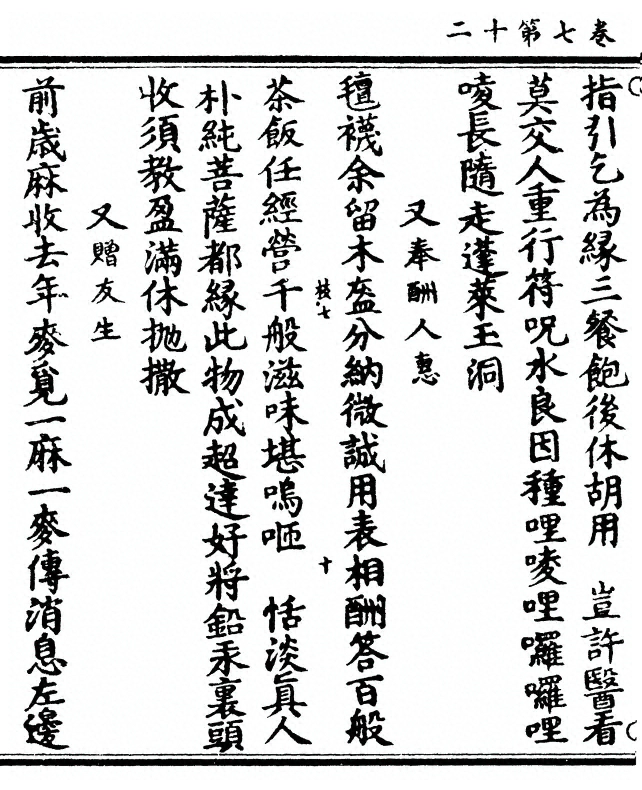 卷七第十二
指引乞為緣三餐飽後休胡用　豈許醫看
莫交人重行符呪水良因種哩唛哩囉囉哩
唛長隨走蓬萊玉洞
又奉酬人惠
氊襪余留木盔分納微誠用表相酬答百般
枝七
十
茶飯任經營千般滋味堪嗚咂　恬淡眞人
朴純菩薩都緣此物成超達好將鉛汞裏頭
收須教盈滿休抛撒
又贈友生
前歲麻收去年麥覓一麻一麥傳消息左邊